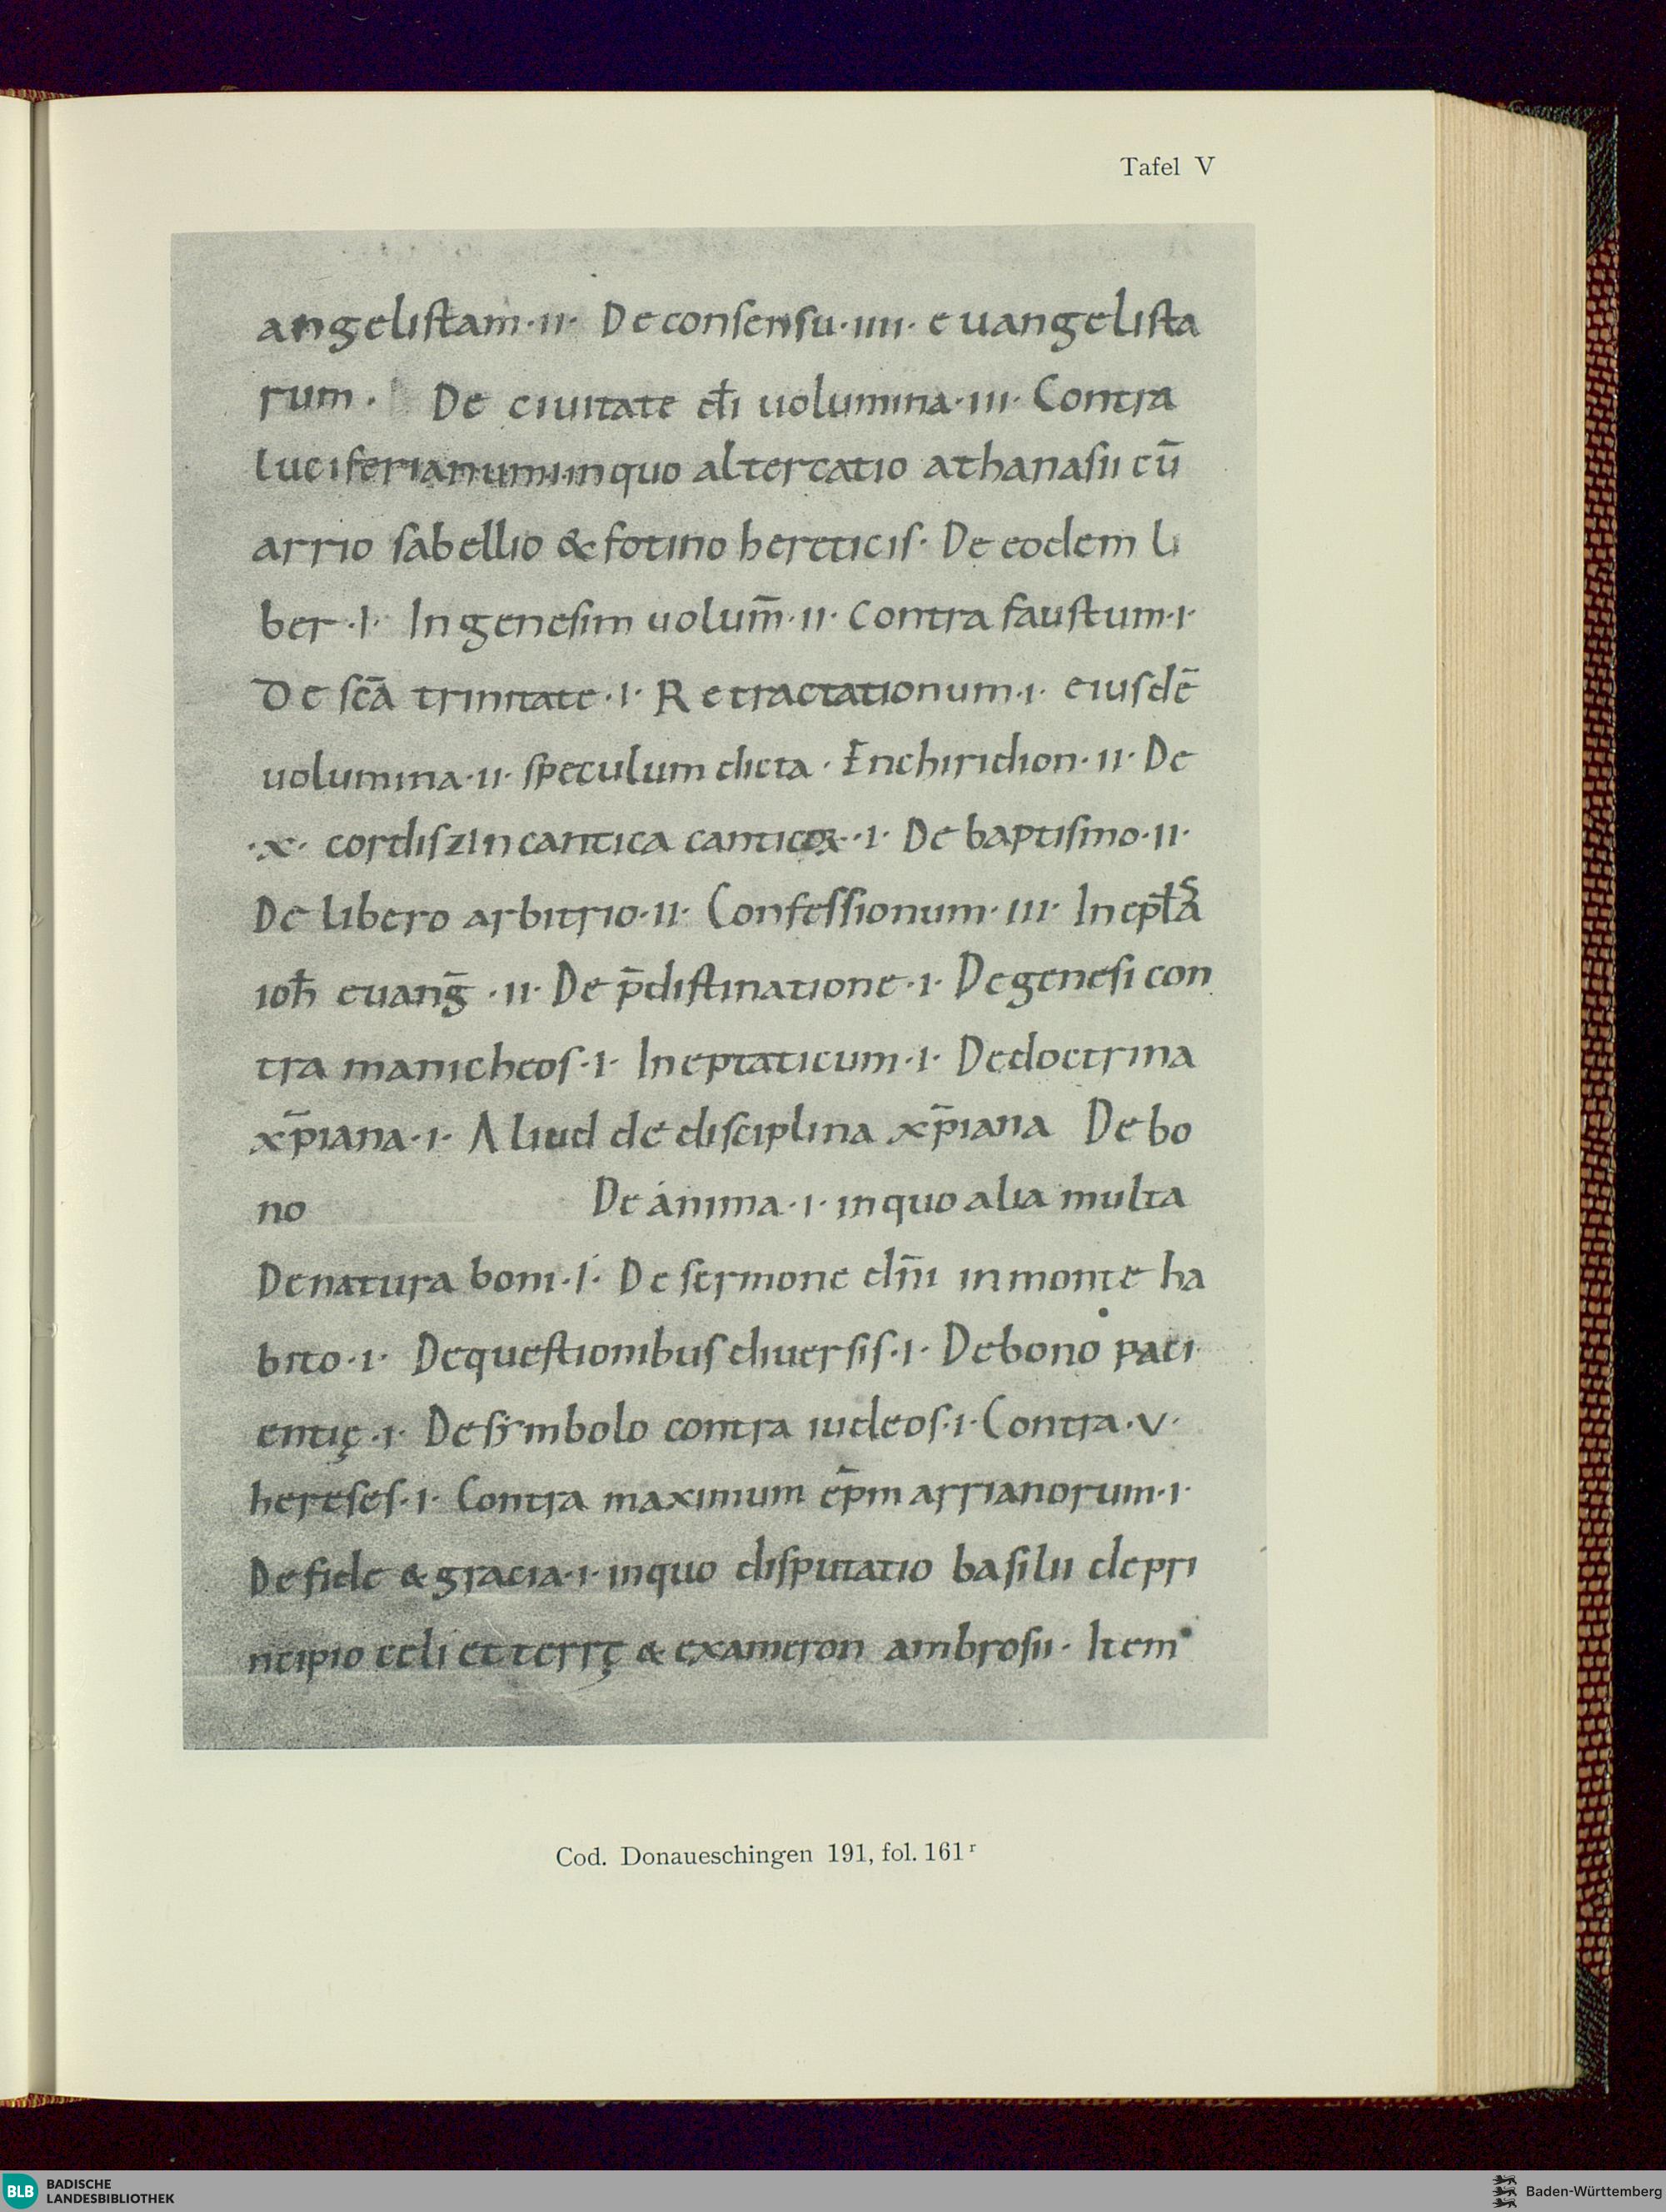 Tafel V
angelistam·II· De consensu·IIII· euangelista
rum. De ciuitate dī uolumina·III· Contra
luciferianum·I·in quo altercatio athanasii cū
arrio sabellio & fotino hereticis· De eodem li
ber·I· In genesim uolum̄·II· Contra faustum·I·
De scā trinitate·I· Retractationum·I· eiusdē
uolumina·II· speculum dicta· Enchiridion·II· De
·X· cordis In cantica canticoꝝ·I· De baptismo·II·
De libero arbitrio·II· Confessionum·III· In
ioħ euang̅·II· De p̄distinatione·I· De genesi con
tra manicheos·I· In eptaticum·I· De doctrina
xp̄iana·I· Aliud de disciplina xp̄iana De bo
no De ánima·I· in quo alia multa
De natura boni·I· De sermone dn̄i in monte ha
bito·I· De questionibus diuersis·I· De bono paci
entię·I· De simbolo contra iudeos·I· Contra·V·
hereses·I· Contra maximum ep̄m arrianorum·I·
De fide & gracia·I· in quo disputatio basilii de pri
ncipio celi et terrę & exameron ambrosii· Item
Cod. Donaueschingen 191, fol. 161ʳ
BLB BADISCHE
LANDESBIBLIOTHEK
Baden-Württemberg